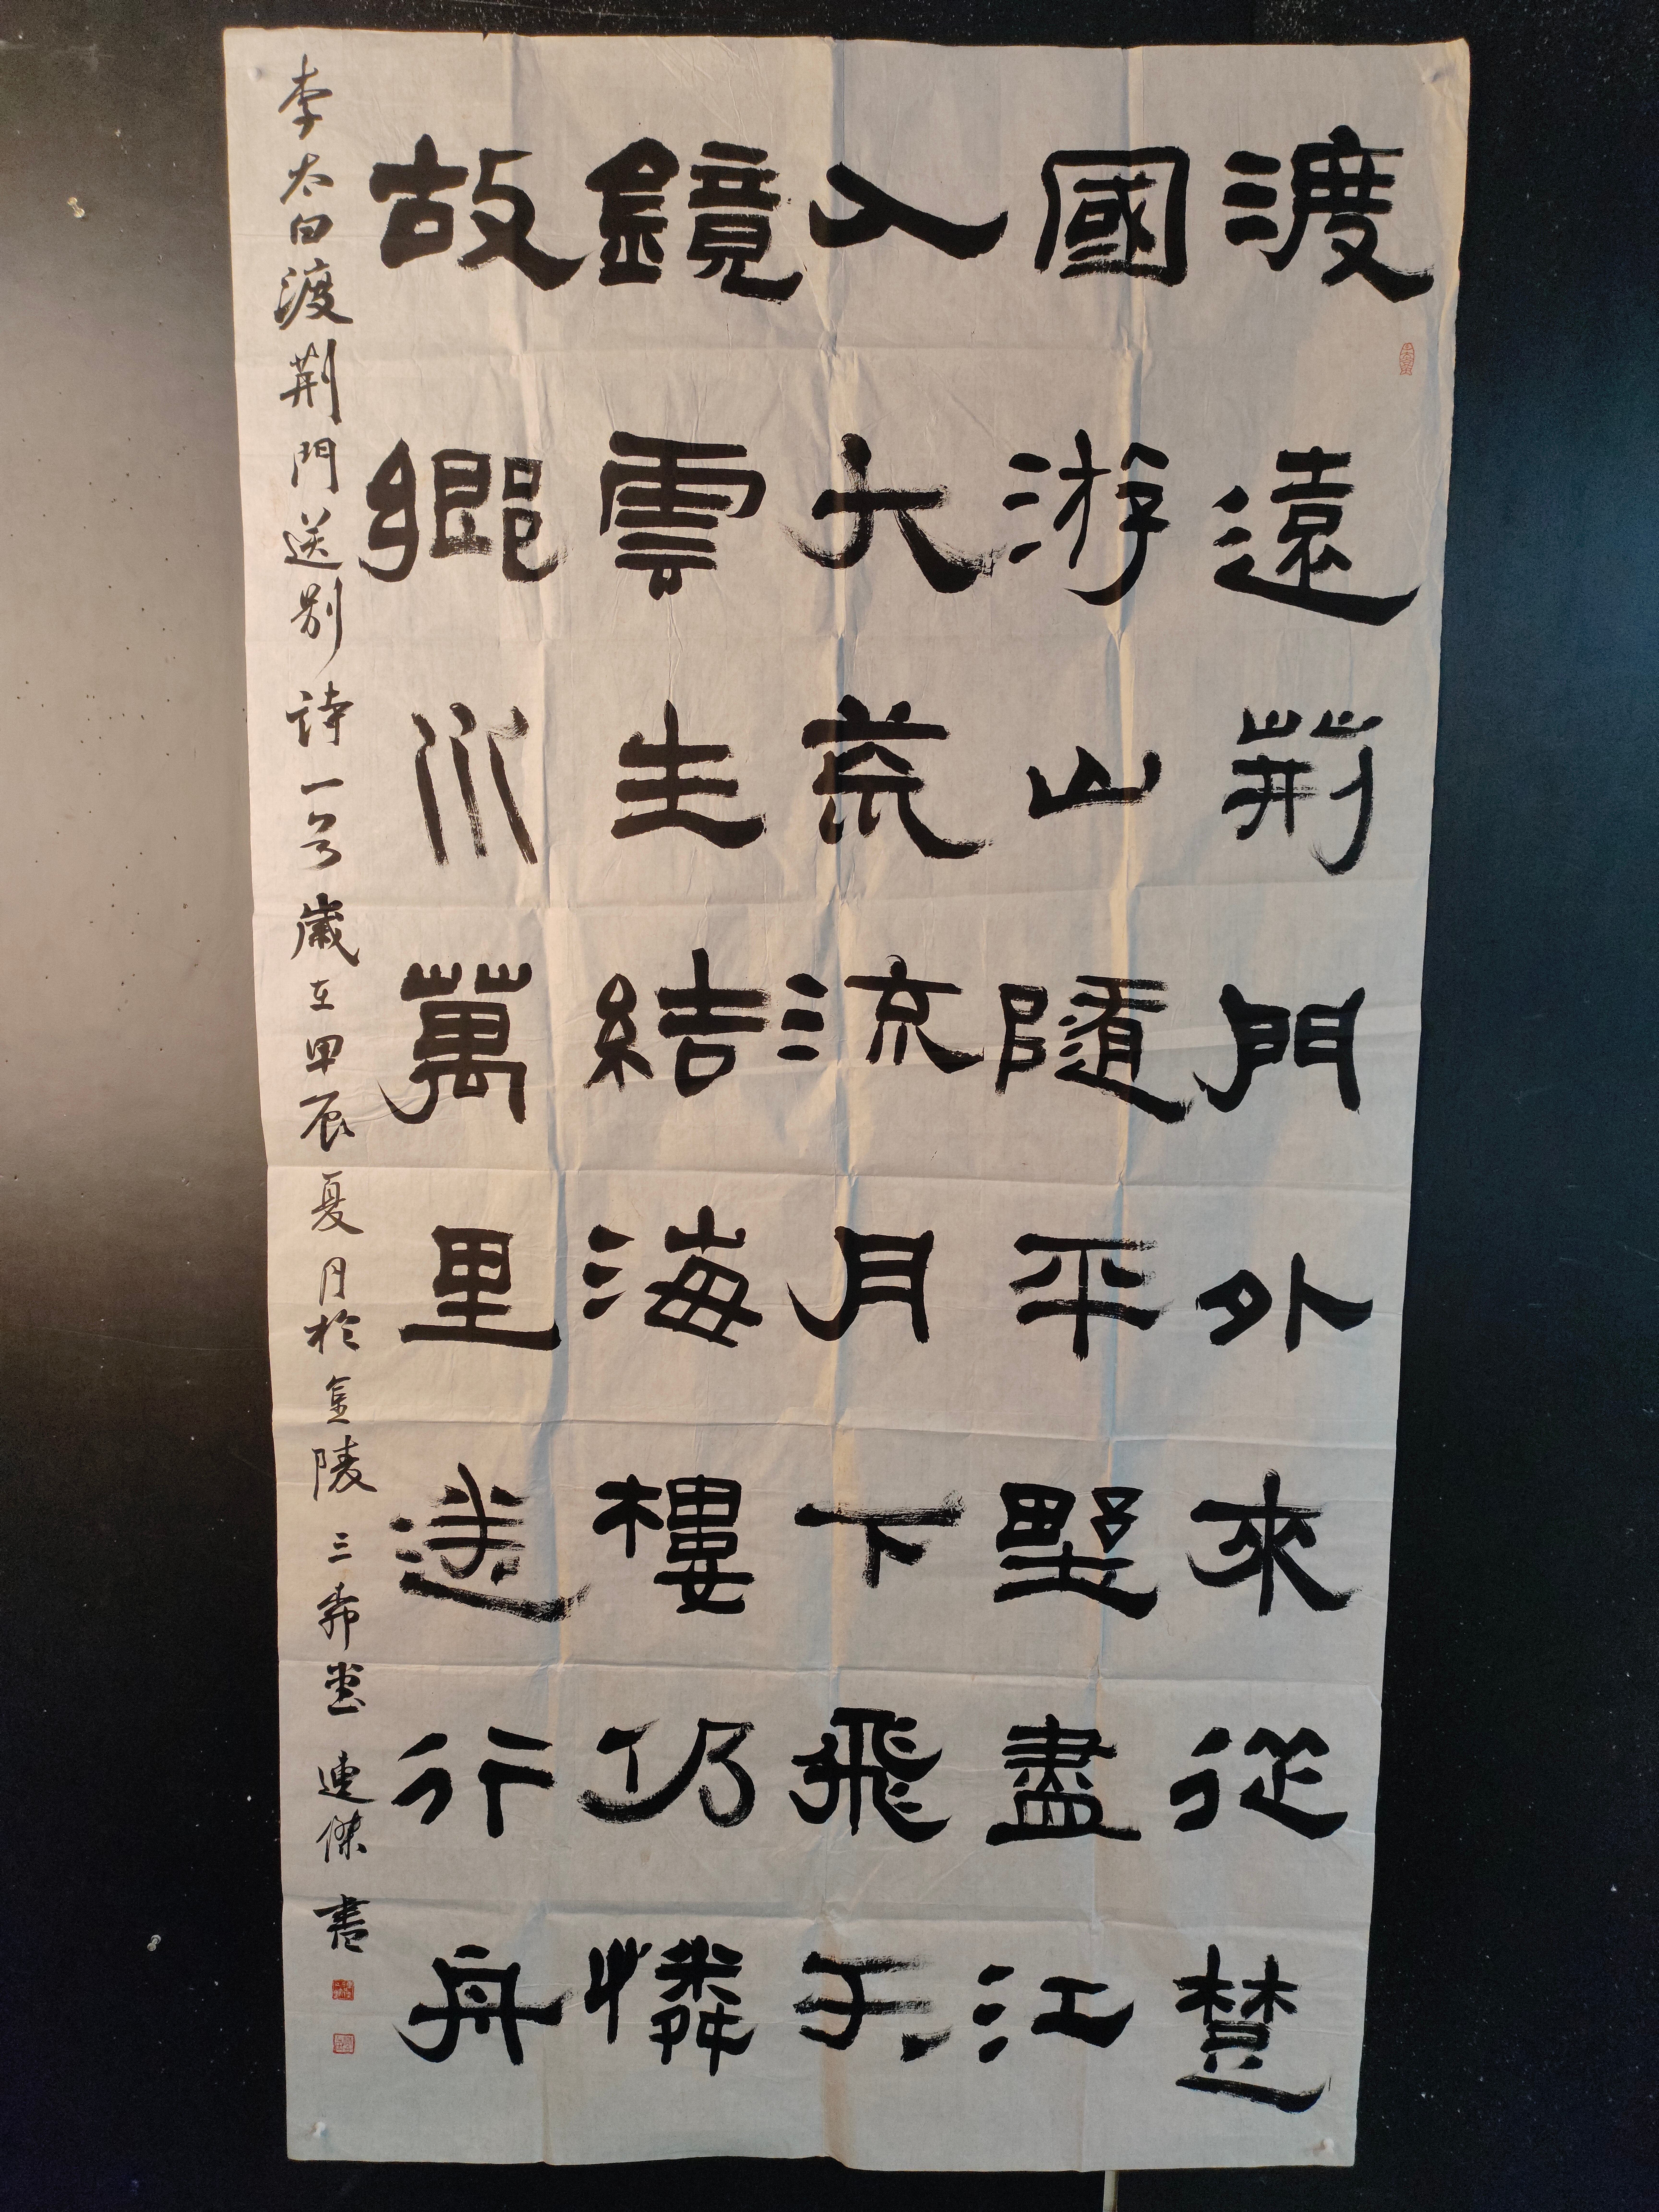 渡遠荊門外來從楚
國游山隨平墅盡江
入大荒流月下飛天
鏡雲生結海樓仍憐
故鄉水萬里送行舟
李太白渡荆門送别詩一首歲在甲辰夏月於金陵三希堂連傑書